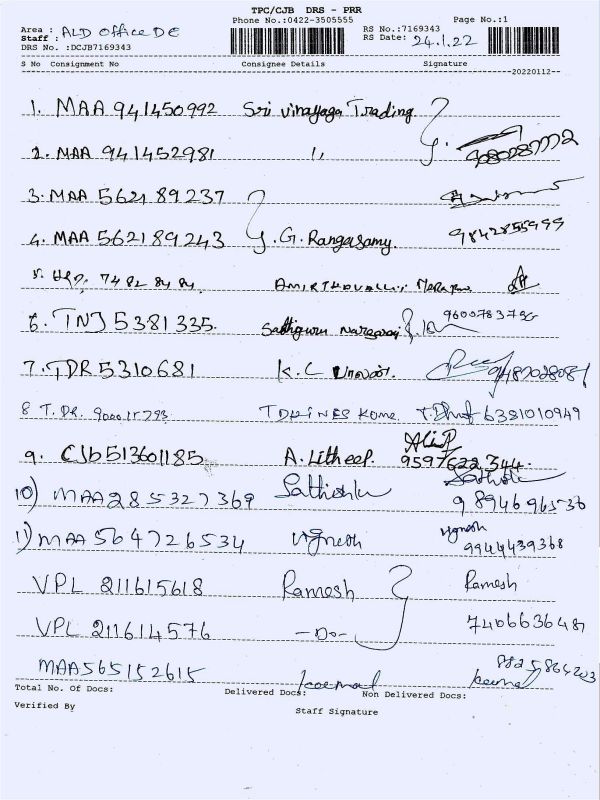 TPC/CJB DRS - PRR
Phone No.:0422-3505555
Page No.:1
Area : ALD Office DE
Staff :
DRS No. :DCJB7169343
RS No.:7169343
RS Date: 24.1.22
S No Consignment No Consignee Details Signature
20220112
1. MAA 941450992 Sri Vinayaga Trading
2. MAA 941452981 ,,
3. MAA 562189237
4. MAA 562189243 G. Rangasamy. 9842855999
5. 74 82 84 84
6. TNJ 5381335. Sathguru
7. TDR 5310681 K.C
8 T. DR. T. 6381010949
9. CJB513601185 A. Litheep 9597622344
10) MAA285327369 Sathish 9894696536
11) MAA 564726534 Vignesh Vignesh
9944439368
VPL 211615618 Ramesh Ramesh
VPL 211614576 -Do- 7406636487
MAA565152615
Total No. Of Docs: Delivered Docs: Non Delivered Docs:
Verified By Staff Signature